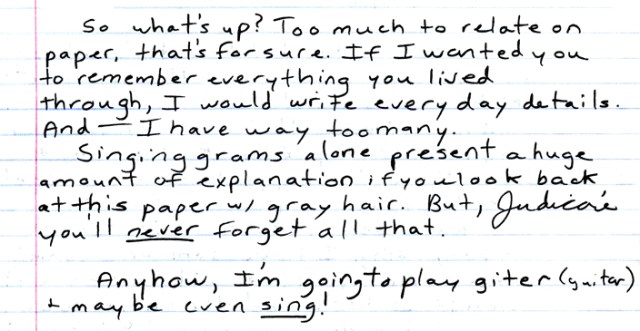 So what's up? Too much to relate on
paper, that's for sure. If I wanted you
to remember everything you lived
through, I would write every day details.
And — I have way too many.
Singing grams alone present a huge
amount of explanation if you look back
at this paper w/ gray hair. But,
you'll never forget all that.
Anyhow, I'm going to play giter (guitar)
+ maybe even sing!